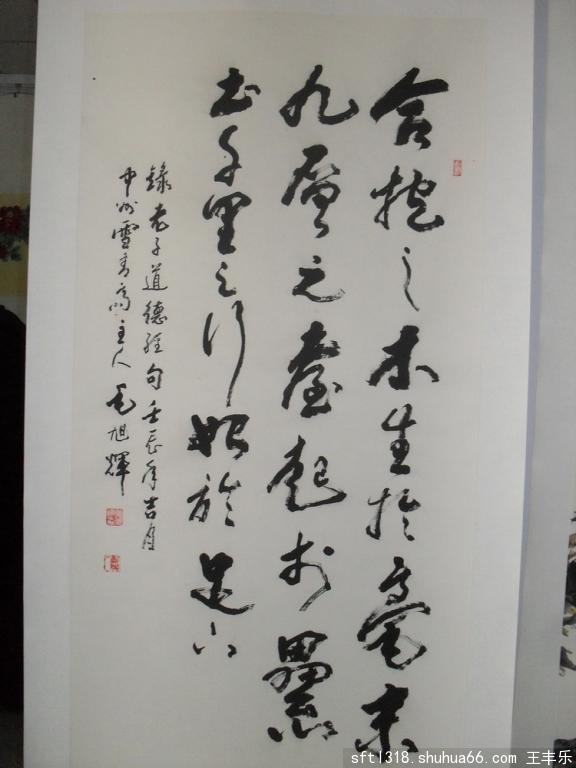 合抱之木生於毫末
九層之臺起於累
土千里之行始於足下
錄老子道德經句壬辰年吉月
中州雪主人毛旭輝
sft1318.shuhua66.com 王丰乐